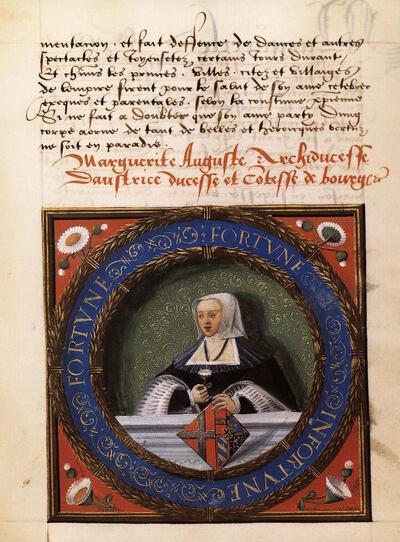 mentacion · et fait deffence de dames et autres
spectacles et Joyeusetez certains jours durant
Et chūns les princes · villes · citez et villaiges
de lempire firent pour le salut de son ame celebrer
exeques et parentales · selon la coustume
Si ne fait a doubter que son ame party dung
corps aorne de tant de belles et heroicques vertuz
ne soit en paradis ·
Marguerite Auguste Archiducesse
Daustrice ducesse et Cōtesse de bourg
FORTVNE · INFORTVNE · FORTVNE